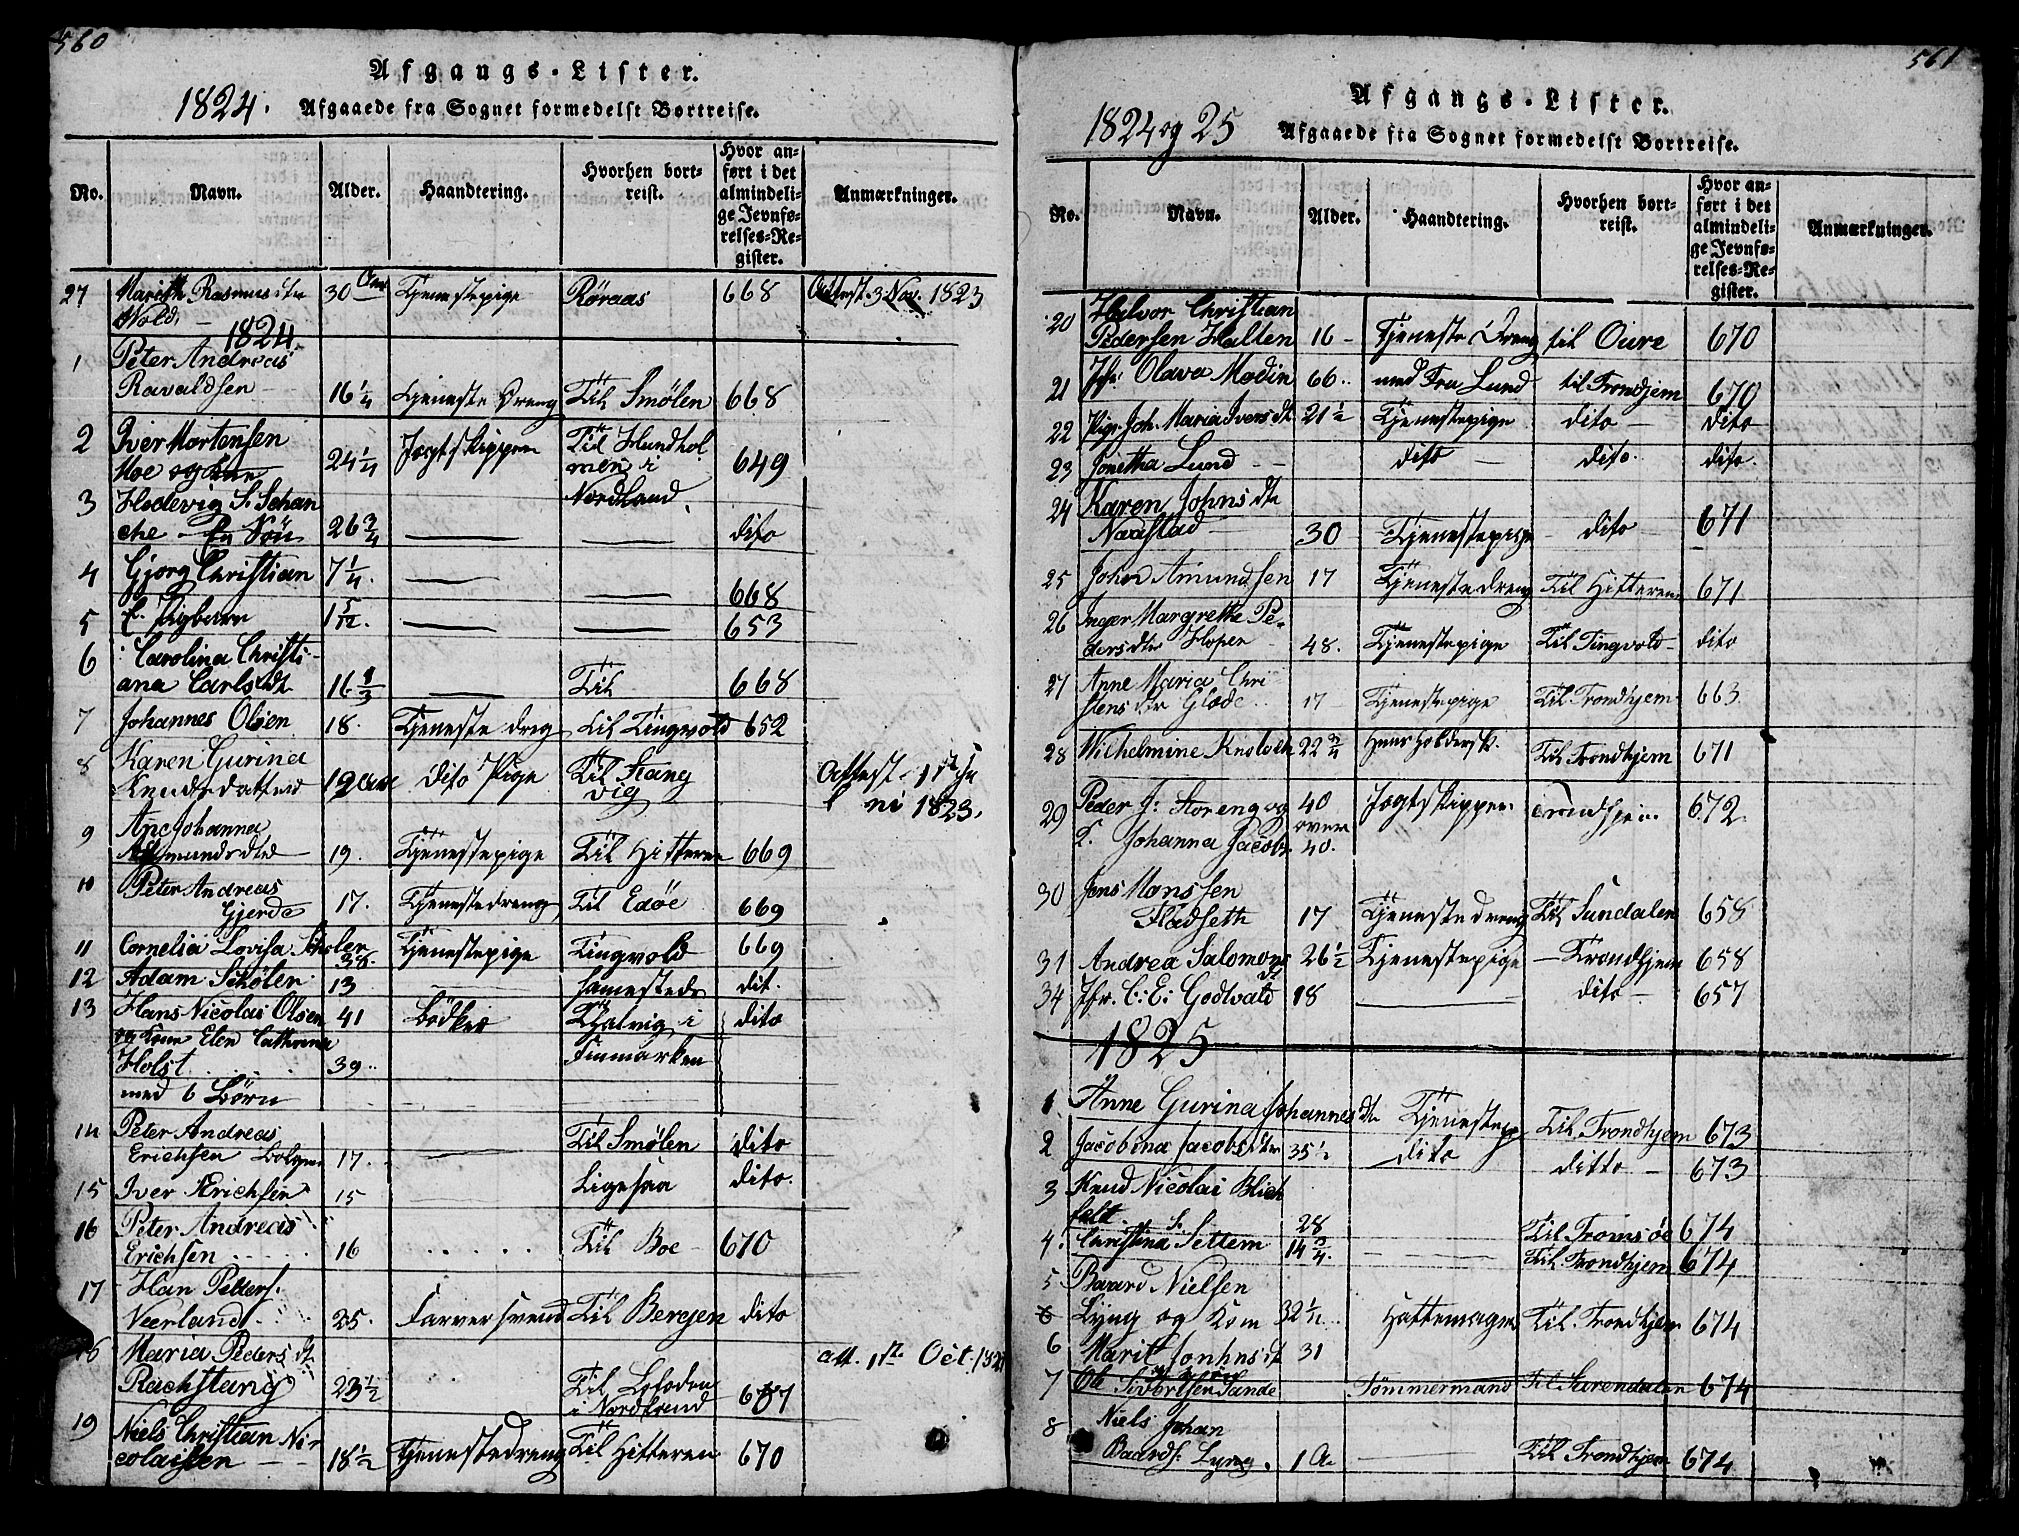 560
Afgangs-Lister.
1824. Afgaaede fra Sognet formedelst Bortreise.
No. Navn. Alder. Haandtering. Hvorhen bortreist. Hvor anført i det almindelige Jevnførelses-Register. Anmærkninger.
27 Marith Rasmusdtr 30 Aar Tjenestepige Röraas 668 Attest. 3 Nov. 1823
Wold.
1824
1 Peter Andreas
Ravaldsen 16 1/4 Tjeneste Dreng Til Smölen 668
2 Iver Mortensen Jagtskipper Til Hundhol
Moe og 24 1/4 men i 649
3 Hedevig S. Schan Nordland.
che En Sön 26 3/4 dito
4 Gjorg Christian 7 1/4. 668
5 E. Pigbarn 1 5/12. 653
6 Carolina Christi-
ana Carlsdt 16 1/3 Til 668
7 Johannes Olsen 18. Tjeneste dreg Til Tingvold 652
8 Karen Gurina Til Stang Attest 1 Ju
Knudsdatter 19 Aar dito Pige vig ni 1823.
9 Ane Johanna
Asmundsdtr 19. Tjenestepige Til Hitteren 669
10 Peter Andreas
Gjerde 17. Tjenestedreng Til Edöe 669
11 Cornelia Lovisa Schöler 38. Tjenestepige Tingvold 669
12 Adam Schöler 13 samesteds dit.
13 Hans Nicolai Olsen 41 Bödker Talvig i dito
og Kone Elen Cathrina Finmarken
Holst 39..
med 6 Börn
14 Peter Andreas Til Smölen dito
Erichsen Bolgen 17.
15 Iver Erichsen 15 Ligesaa dito.
16 Peter Andreas
Erichsen 16 Til Boe 670
17 Han Peders.
Neerland 25. Farversvend Til Bergen dito
18 Maria Peders dt att. 1 Oct. 182
Rachstang 23 1/2 Til Lofoden
i Nordland
19 Niels Christian Ni-
colaisen 18 1/2 Tjenestedreng Til Hitteren 670
561
Afgangs-Lister.
1824 og 25 Afgaaede fra Sognet formedelst Bortreise.
No. Navn. Alder. Haandtering. Hvorhen bortreist. Hvor anført i det almindelige Jevnførelses-Register. Anmærkninger.
20 Halvor Christian
Pedersen Halten 16 Tjeneste Dreng til Oure 670
21 Jfr Olava Modin 66.. med Fra Lund til Trondhjem 670
22 Pige Joh. Maria Ivers dt 21 1/2 Tjenestepige dito dito
23 Jonetha Lund dito dito. dito.
24 Karen Johns dtr
Naastad 30 Tjenestepige dito 671
25 John Amundsen 17 Tjenestedreng Til Hitteren 671
26 Inger Margrethe Pe-
dersdtr Hopen 48. Tjenestepige Til Tingvold dito
27 Anne Maria Chri
stens dtr Glade.. 17 Tjenestepige Til Trondhjem 663.
28 Wilhelmine Knoloch 22 3/4 Huusholdersk. Til Trondhjem 671
29 Peder J: Storeng og 40 Jagtskipper Trondhjem 672
K. Johanna Jacobs over 40.
30 Jens Monssen
Fladseth 17 Tjenestedreng Til Sundalen 658
31 Andrea Salomons dt 26 1/2 Tjenestepige Trondhjem 658
34 Jfr. C: E: Godtvald 18 dito 657
1825
1 Anne Gurina Johannes dtr Tjenestep Til Trondhjem 673
2 Jacobina Jacobsdter 35 1/2 dito ditto 673
3 Knud Nicolai Blich
feldt 28 Til Tromsöe 674
4. Christina S. Settem 14 3/4. Til Trondhjem 674
5 Baard Nielsen
Lyng og Kone 32 1/2 Hattemager Til Trondhjem 674
6 Marit Jonhns dt 31
7 Ole Sivertsen Sande Tömmermand Til Surendalen 674
8 Niels Johan
Baards. Lyng. 1 A Til Trondhjem 674